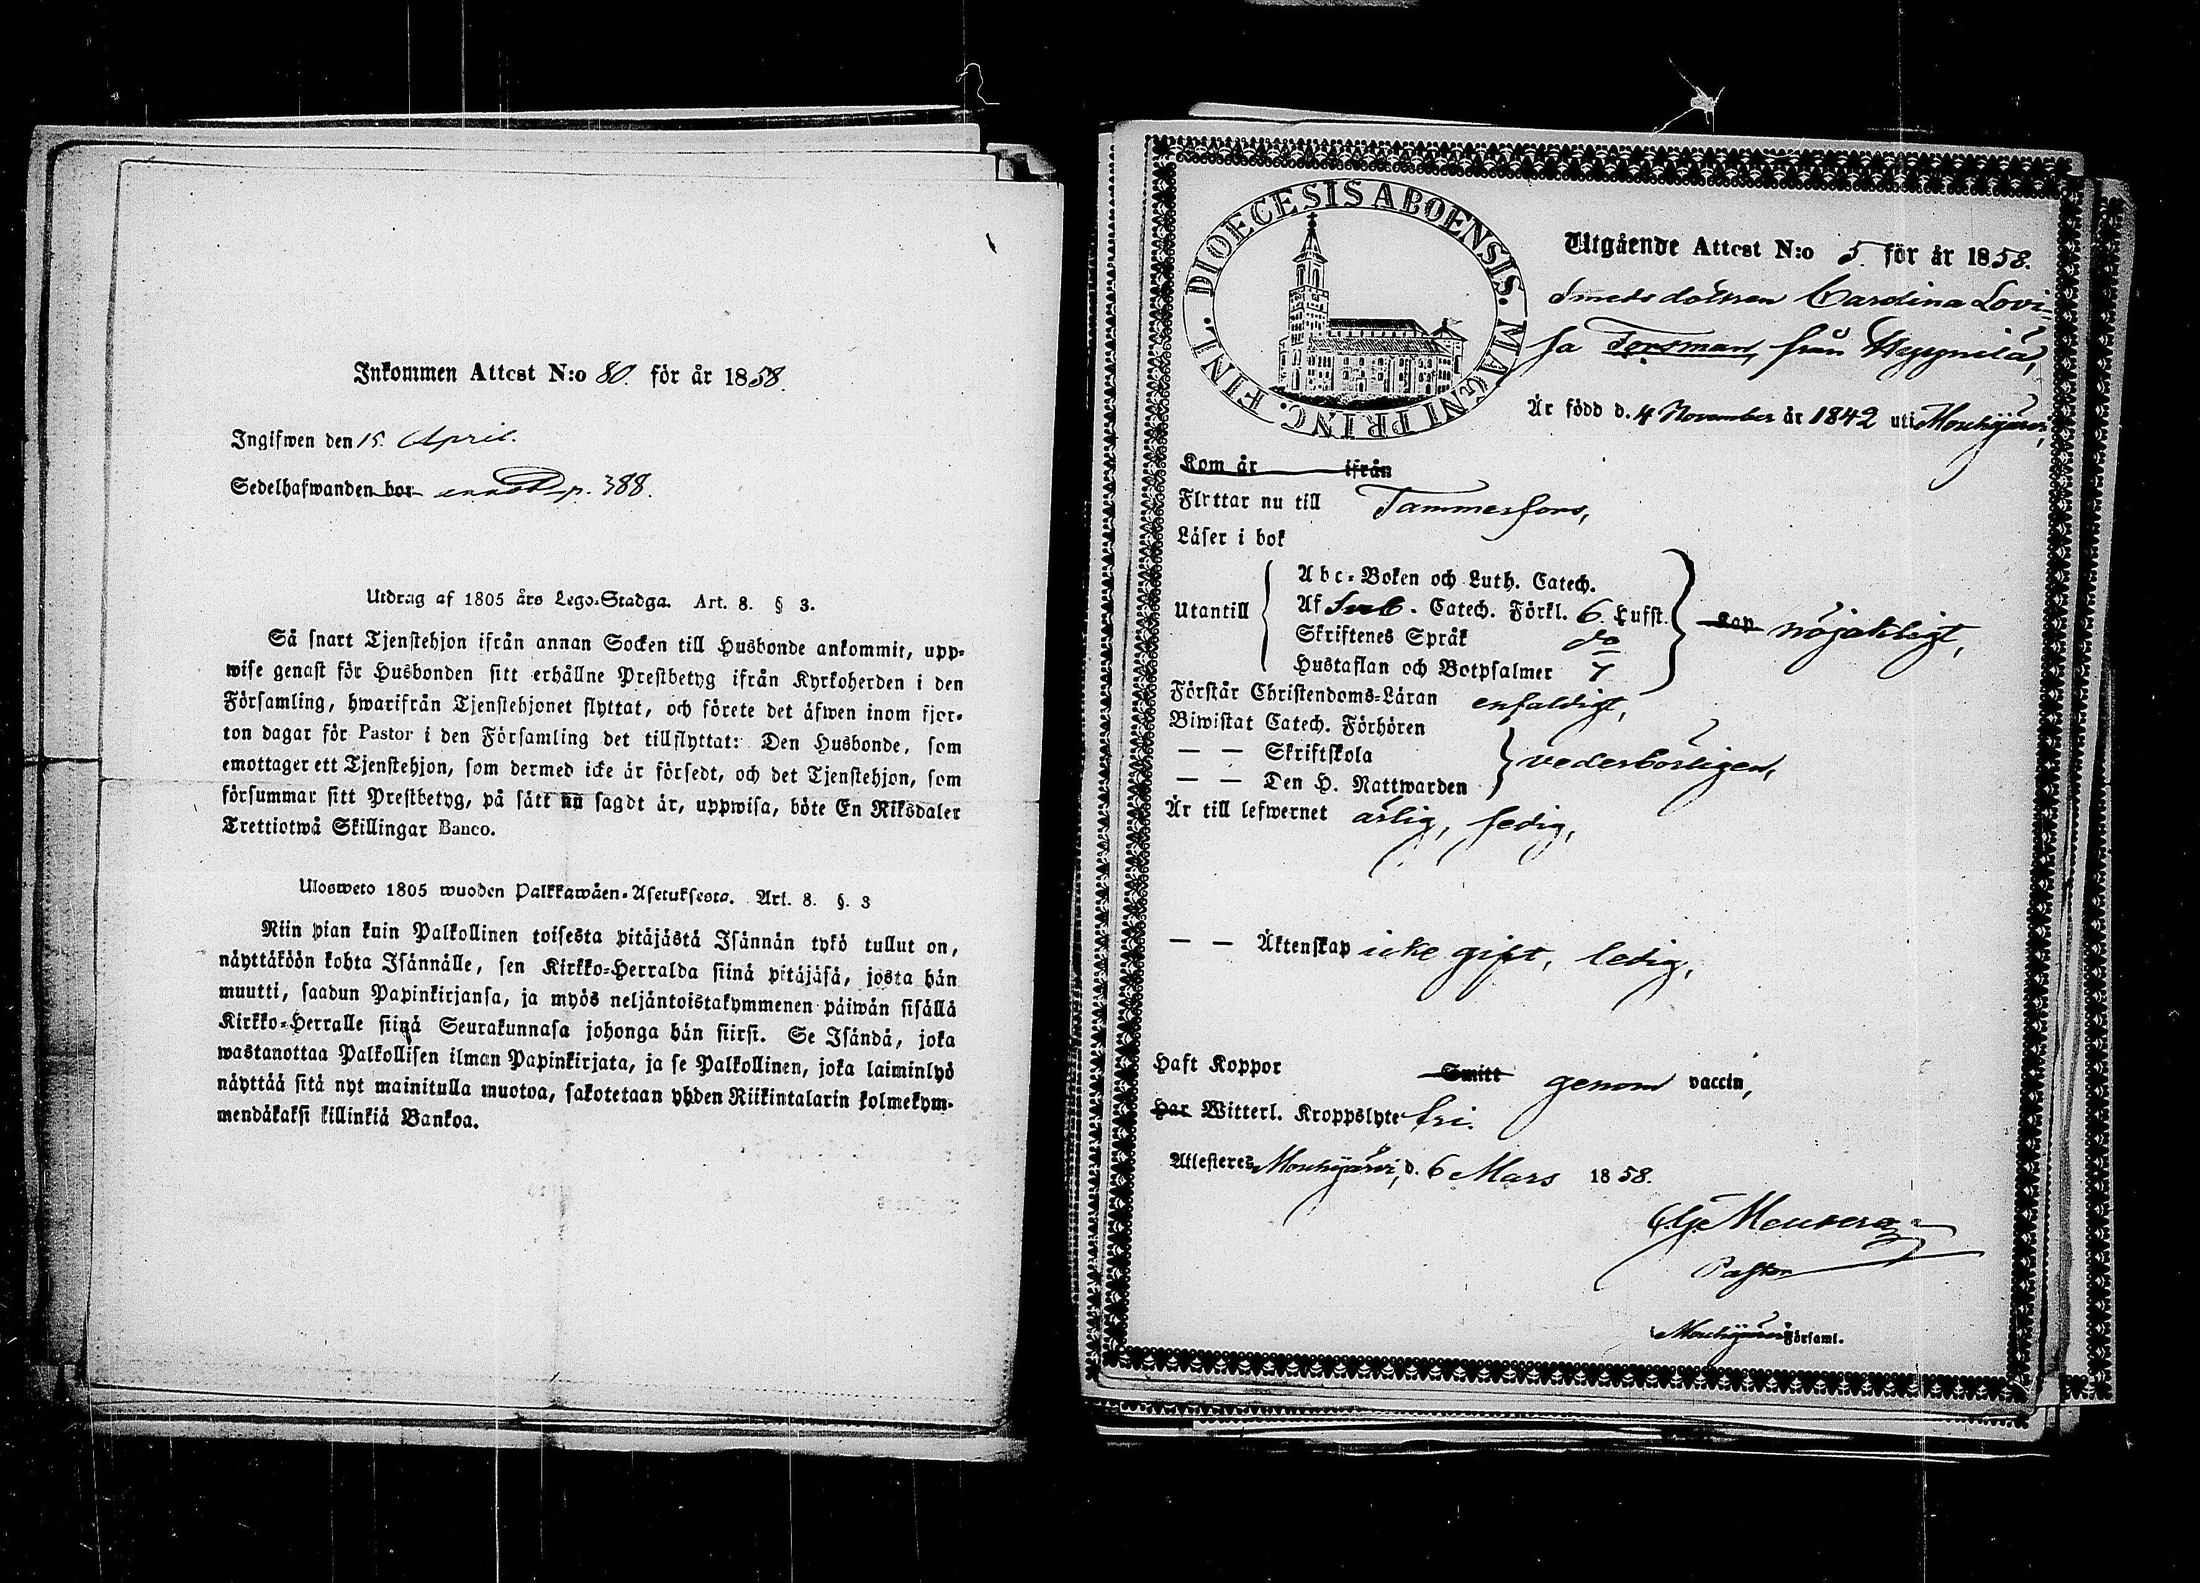 Inkommen Attest N:o 80. för år 1858.
Ingifwen den 15. April.
Sedelhafwanden bor p. 388.
Utdrag af 1805 års Lego-Stadga. Art. 8. § 3.
Så snart Tjenstehjon ifrån annan Socken till Husbonde ankommit, upp-
wise genast för Husbonden sitt erhållne Prestbetyg ifrån Kyrkoherden i den
Församling, hwarifrån Tjenstehjonet flyttat, och förete det äfwen inom fjor-
ton dagar för Pastor i den Församling det tillflyttat: Den Husbonde, som
emottager ett Tjenstehjon, som dermed icke är försedt, och det Tjenstehjon, som
försummar sitt Prestbetyg, på sätt nu sagdt är, uppwisa, böte En Riksdaler
Trettiotwå Skillingar Banco.
Ulosweto 1805 wuoden Palkkawäen-Asetuksesta. Art. 8. §. 3
Niin pian kuin Palkollinen toisesta pitäjästä Isännän tykö tullut on,
näyttäköön kohta Isännälle, sen Kirkko-Herralda siinä pitäjäsä, josta hän
muutti, saadun Papinkirjansa, ja myös neljäntoistakymmenen päiwän sisällä
Kirkko-Herralle siinä Seurakunnasa johonga hän siirsi. Se Isändä, joka
wastanottaa Palkollisen ilman Papinkirjata, ja se Palkollinen, joka laiminlyö
näyttää sitä nyt mainitulla muotoa, sakotetaan yhden Riikintalarin kolmekym-
mendäkaksi killinkiä Bankoa.
DIOECESIS ABOENSIS. MAGNI PRINC. FINL.
Utgående Attest N:o 5. för år 1858.
Smedsdottren Carolina Lovi-
sa Forsman, från
Är född d. 4 November år 1842 uti Mouhijärvi,
Kom år ifrån
Flyttar nu till Tammerfors,
Läser i bok
Utantill
Abc-Boken och Luth. Catech.
Af Sveb. Catech. Förkl. 6. Lufst.
Skriftenes Språk do
Hustaflan och Botpsalmer 7
nöjaktigt,
Förstår Christendoms-Läran enfaldigt,
Biwistat Catech. Förhören
— — Skriftskola
— — Den H. Nattwarden
vederbörligen,
Är till lefwernet ärlig, sedig,
— — Äktenskap icke gift, ledig,
Haft Koppor Smitt genom vaccin,
Har Witterl. Kroppslyte fri.
Attesteres, Mouhijärvi, d. 6 Mars 1858.
Pastor
i Mouhijärvi Församl.